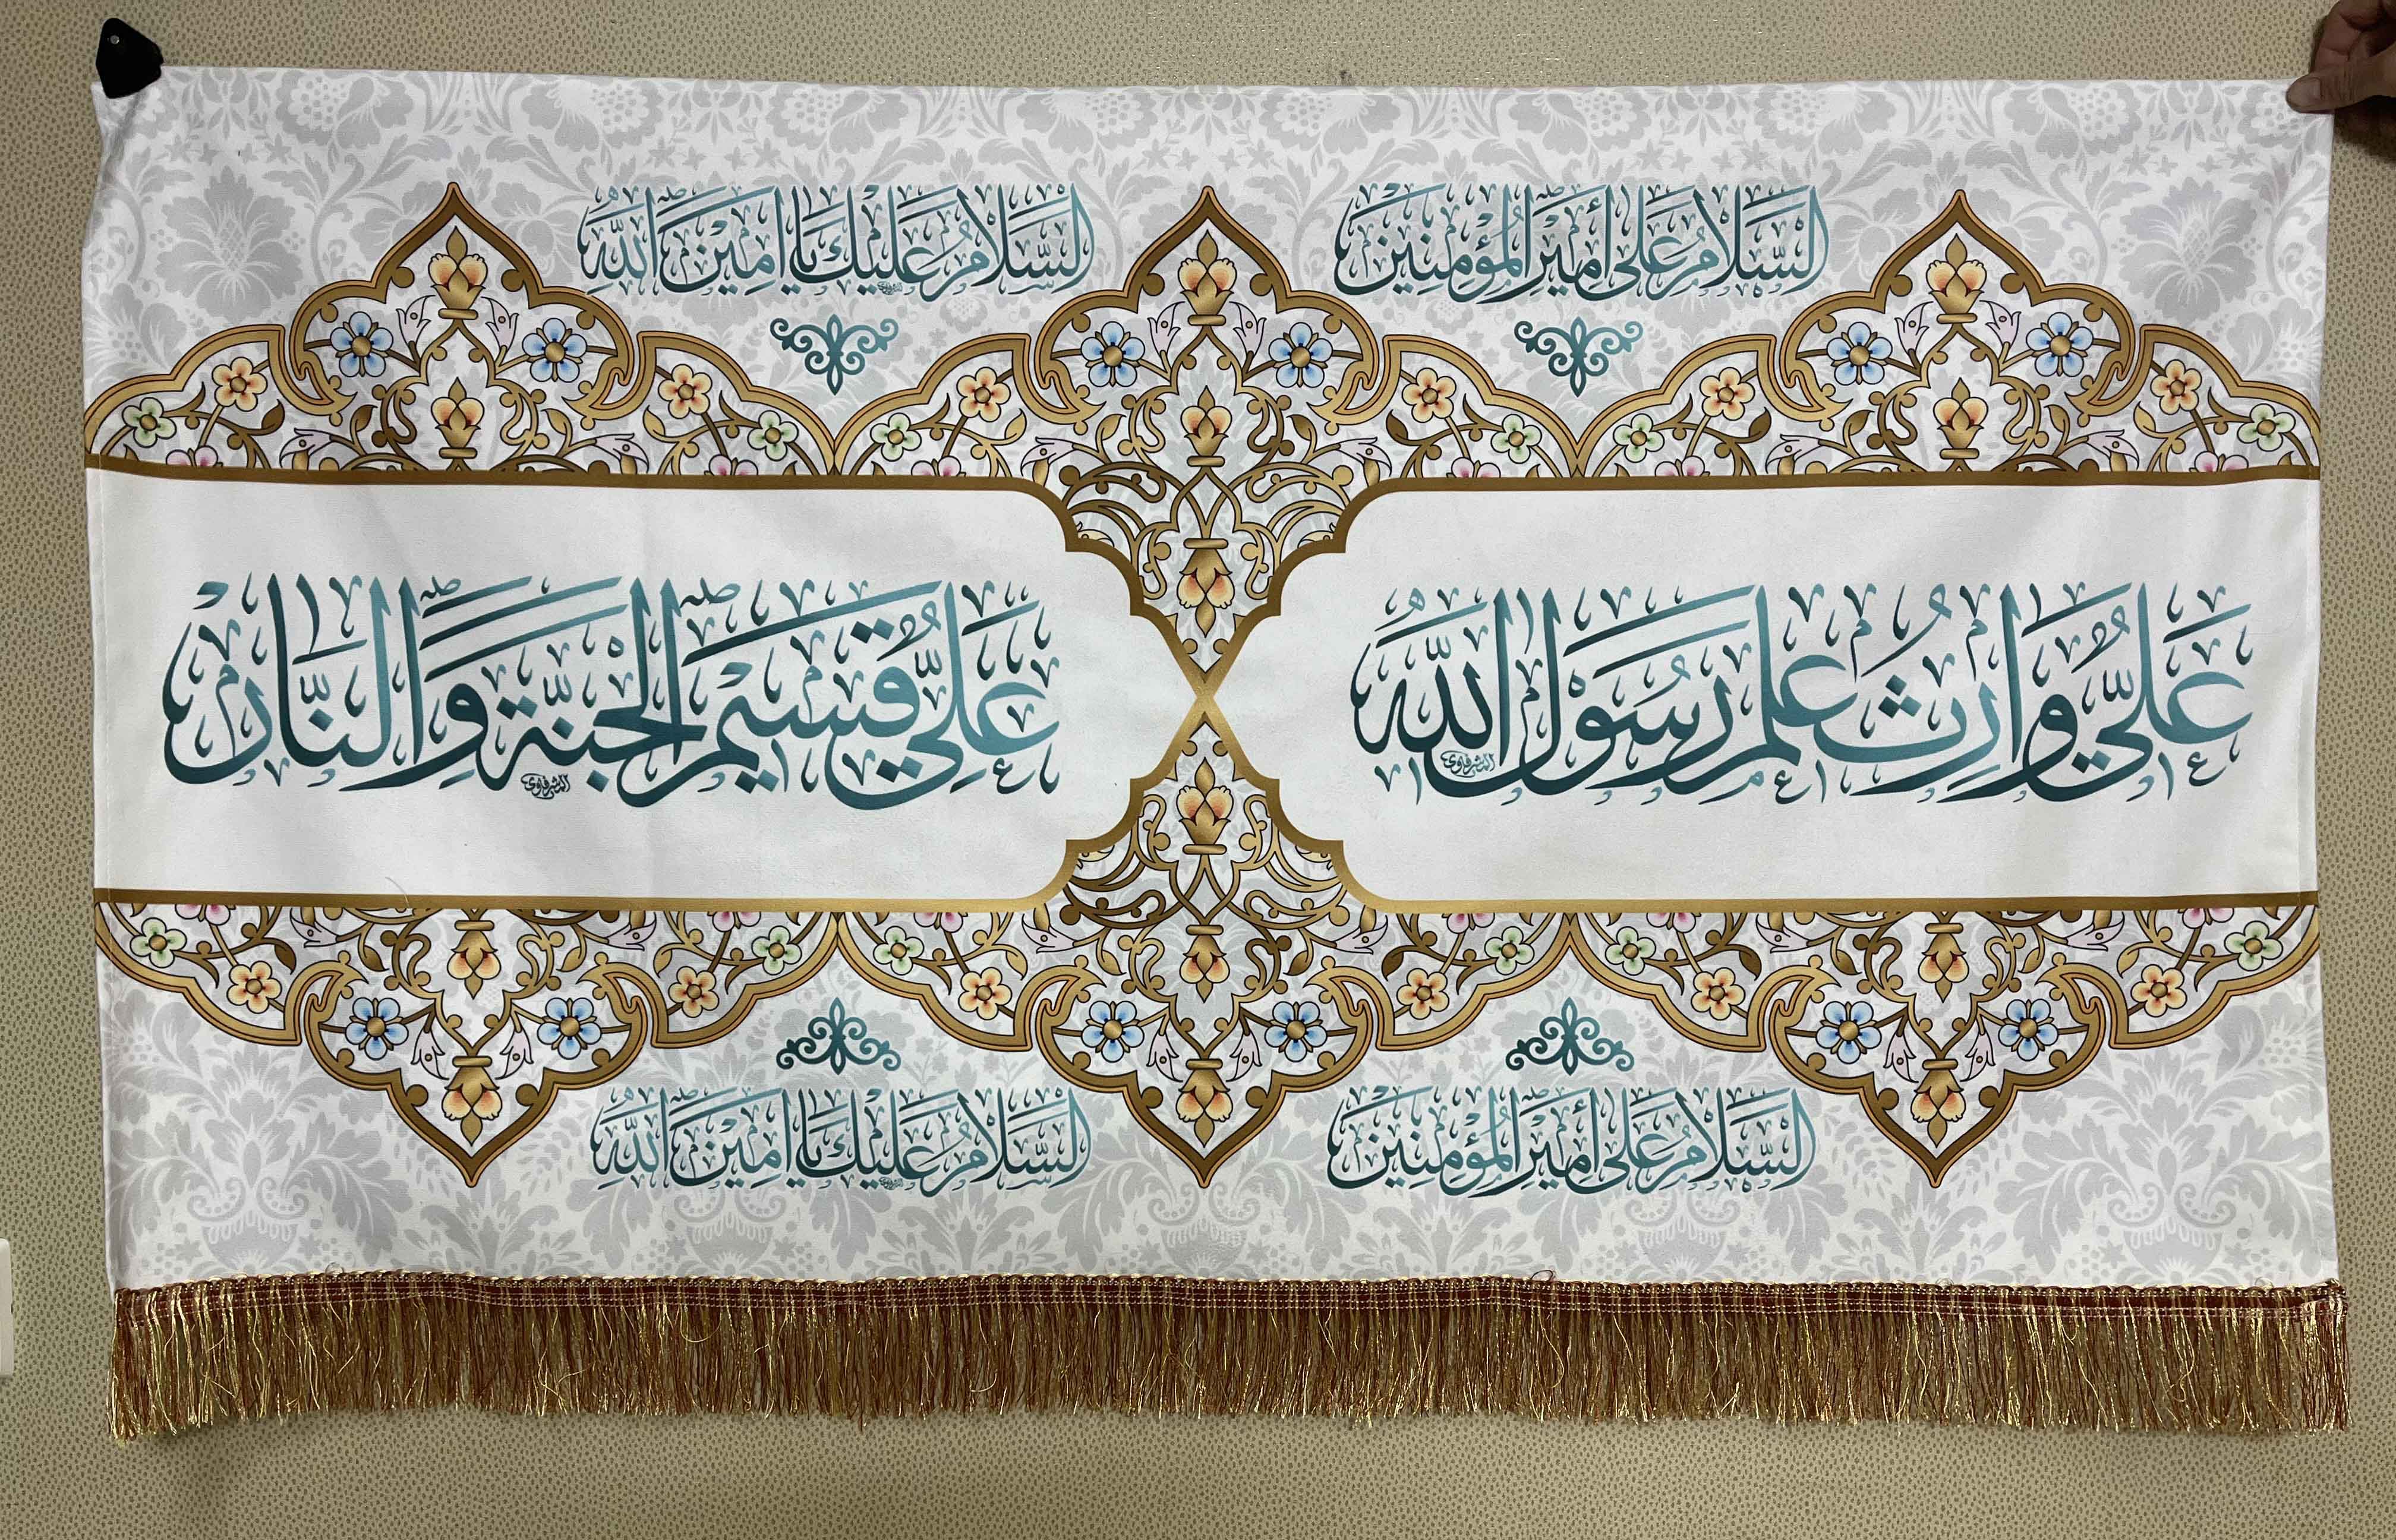 السَّلَامُ عَلَى أَمِيرِ الْمُؤْمِنِينَ
السَّلَامُ عَلَيْكَ يَا أَمِينَ اللهِ
عَلِيٌّ وَارِثُ عِلْمِ رَسُولِ اللهِ
المشرفاوي
عَلِيٌّ قَسِيمُ الْجَنَّةِ وَالنَّارِ
المشرفاوي
السَّلَامُ عَلَى أَمِيرِ الْمُؤْمِنِينَ
السَّلَامُ عَلَيْكَ يَا أَمِينَ اللهِ